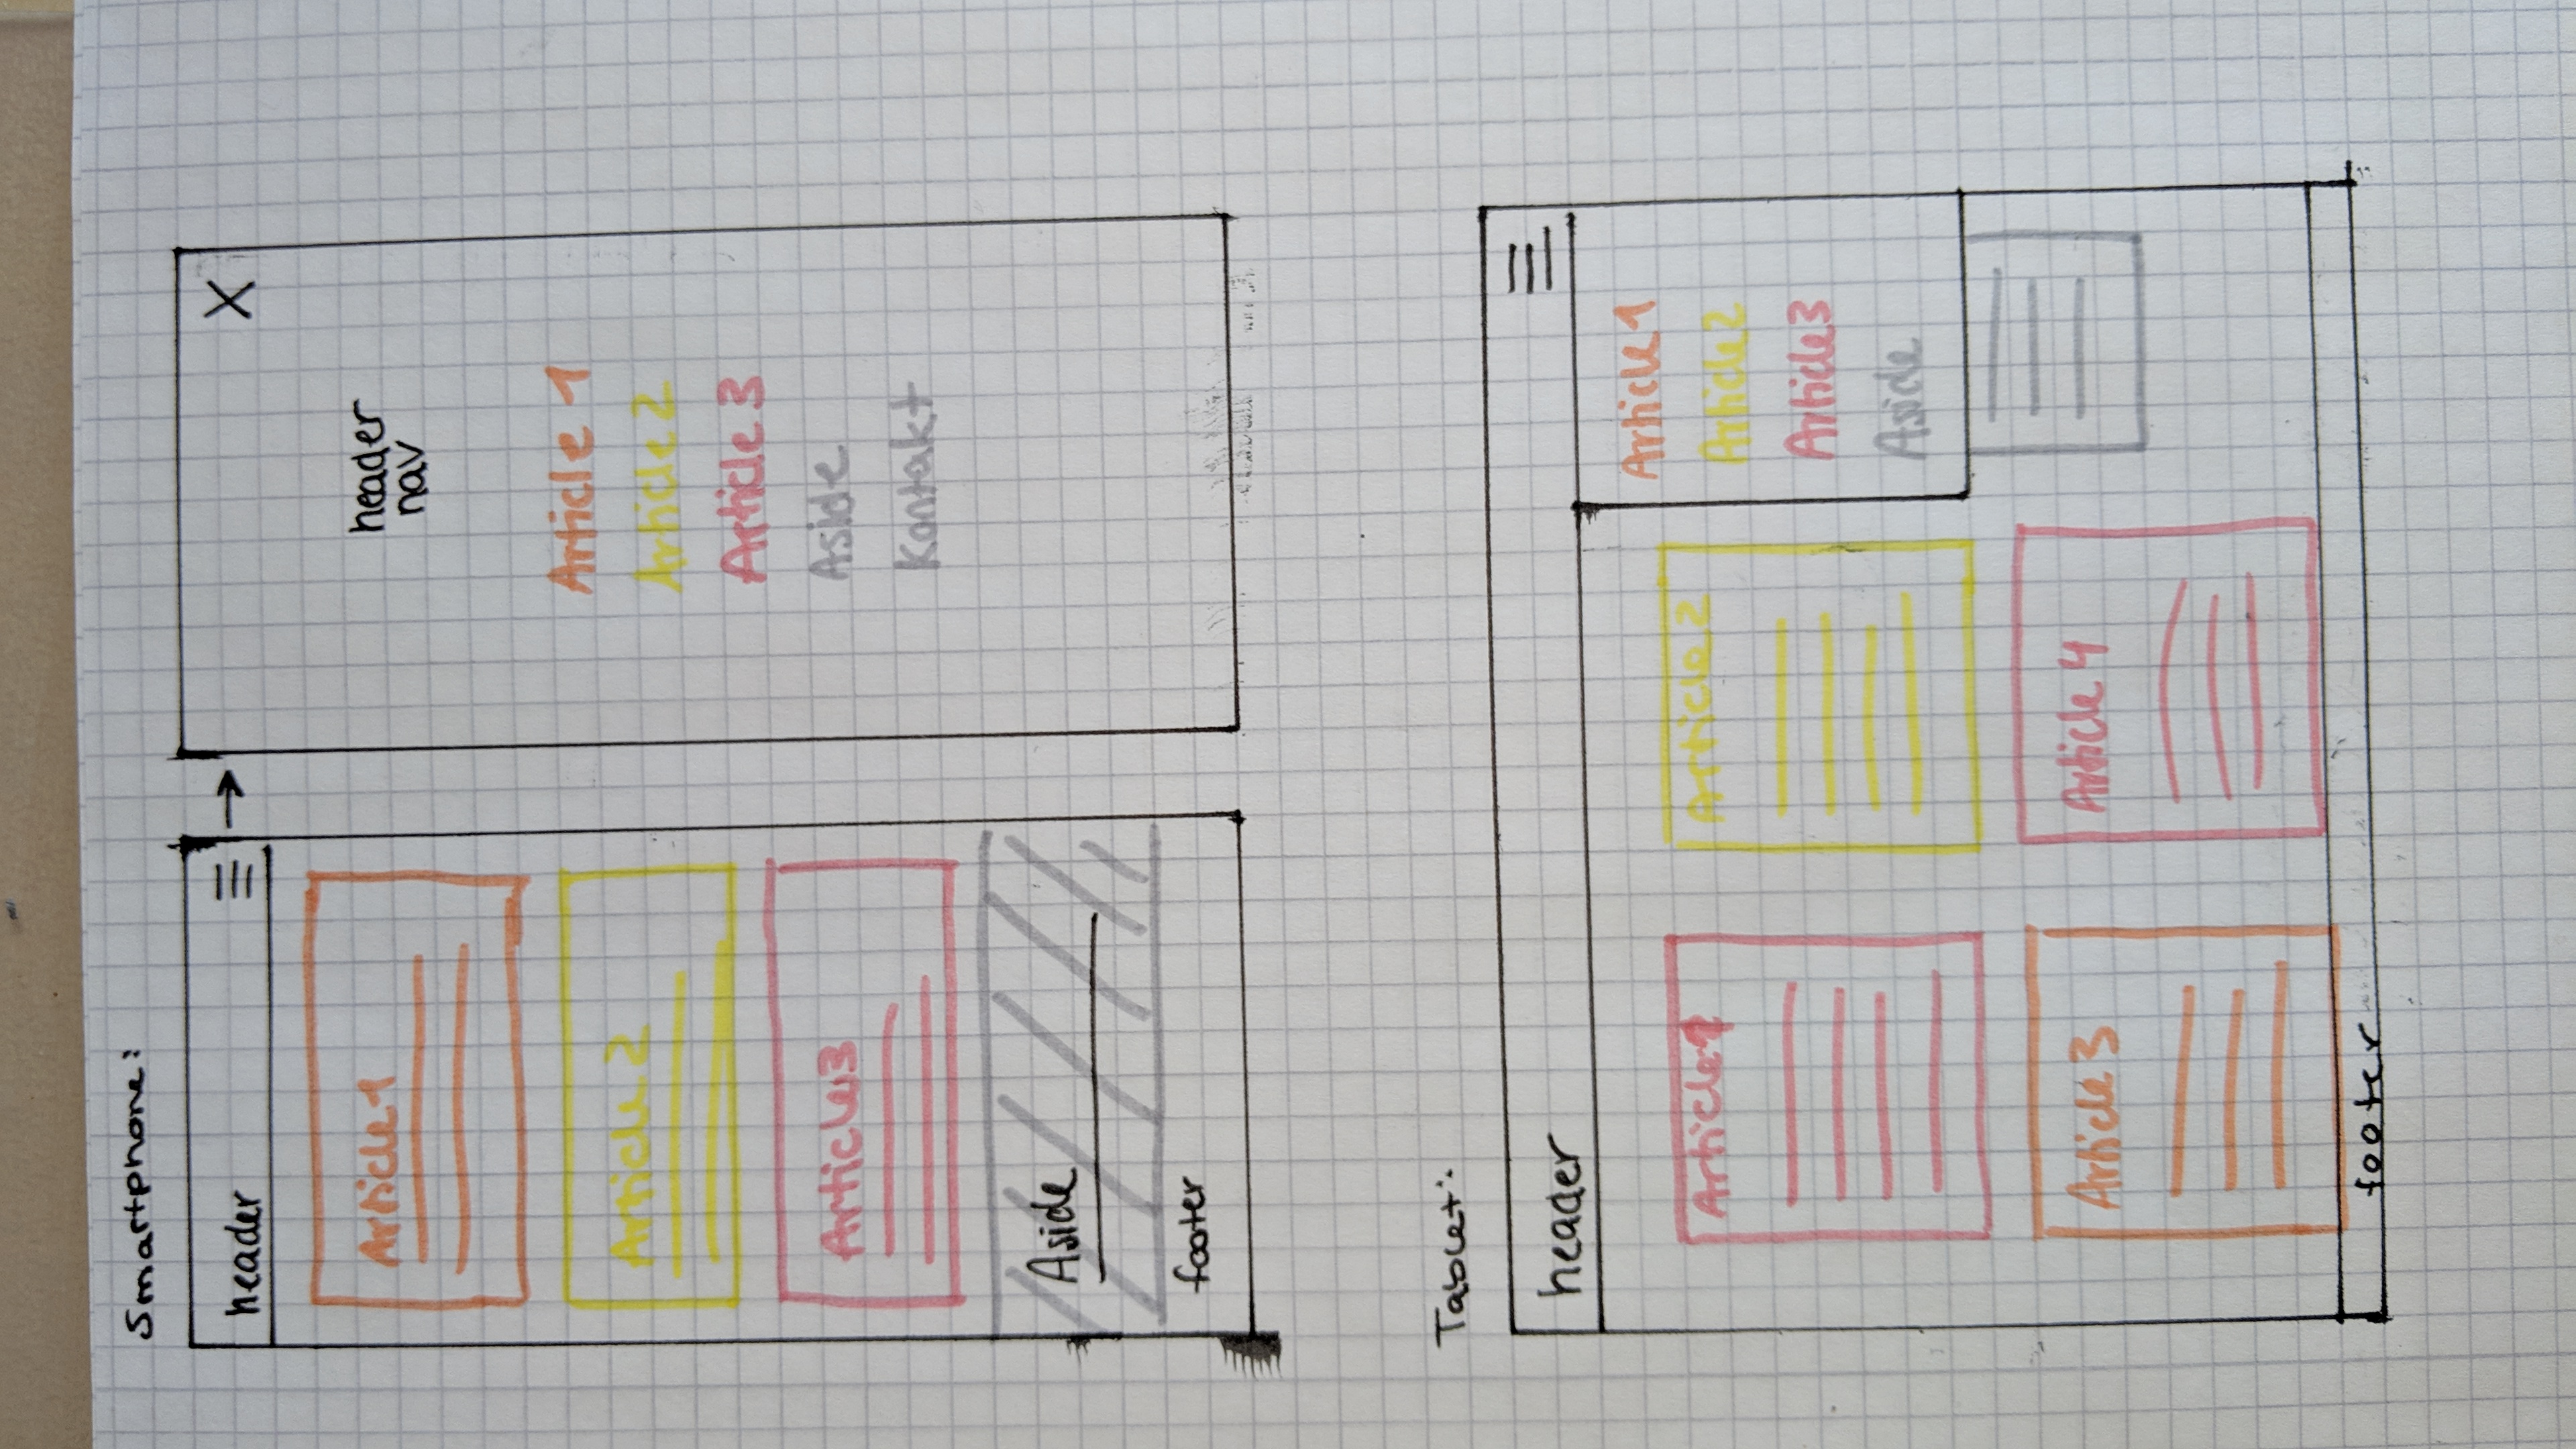 Smartphone:
header
Article 1
Article 2
Article 3
Aside
footer
X
header
nav
Article 1
Article 2
Article 3
Aside
Kontakt
Tablet:
header
Article 1
Article 2
Article 3
Article 4
Article 1
Article 2
Article 3
Aside
footer